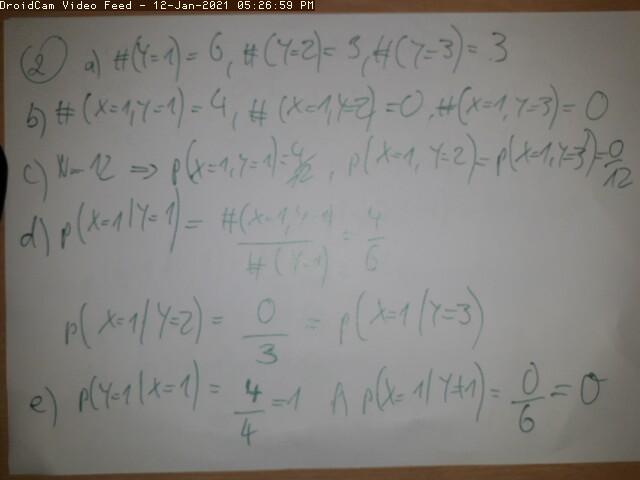 DroidCam Video Feed - 12-Jan-2021 05:26:59 PM
(2) a) #(Y=1) = 6, #(Y=2) = 3, #(Y=3) = 3
b) #(X=1,Y=1) = 4, #(X=1,Y=2) = 0, #(X=1,Y=3) = 0
c) N=12 => p(X=1,Y=1) = 4/12, p(X=1,Y=2) = p(X=1,Y=3) = 0/12
d) p(X=1|Y=1) = #(X=1,Y=1)/#(Y=1) = 4/6
p(X=1|Y=2) = 0/3 = p(X=1|Y=3)
e) p(Y=1|X=1) = 4/4 = 1 p(X=1|Y≠1) = 0/6 = 0